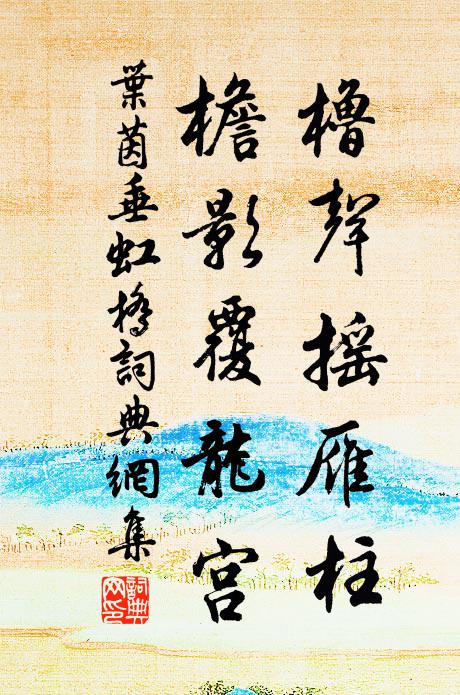 櫓聲搖雁柱
檐影覆龍宮
葉茵垂虹橋詞典網集
詞典
网印